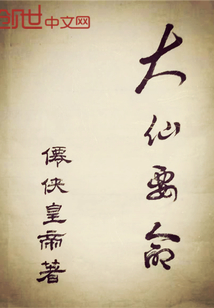 创世中文网
大仙要命
僊俠皇帝著